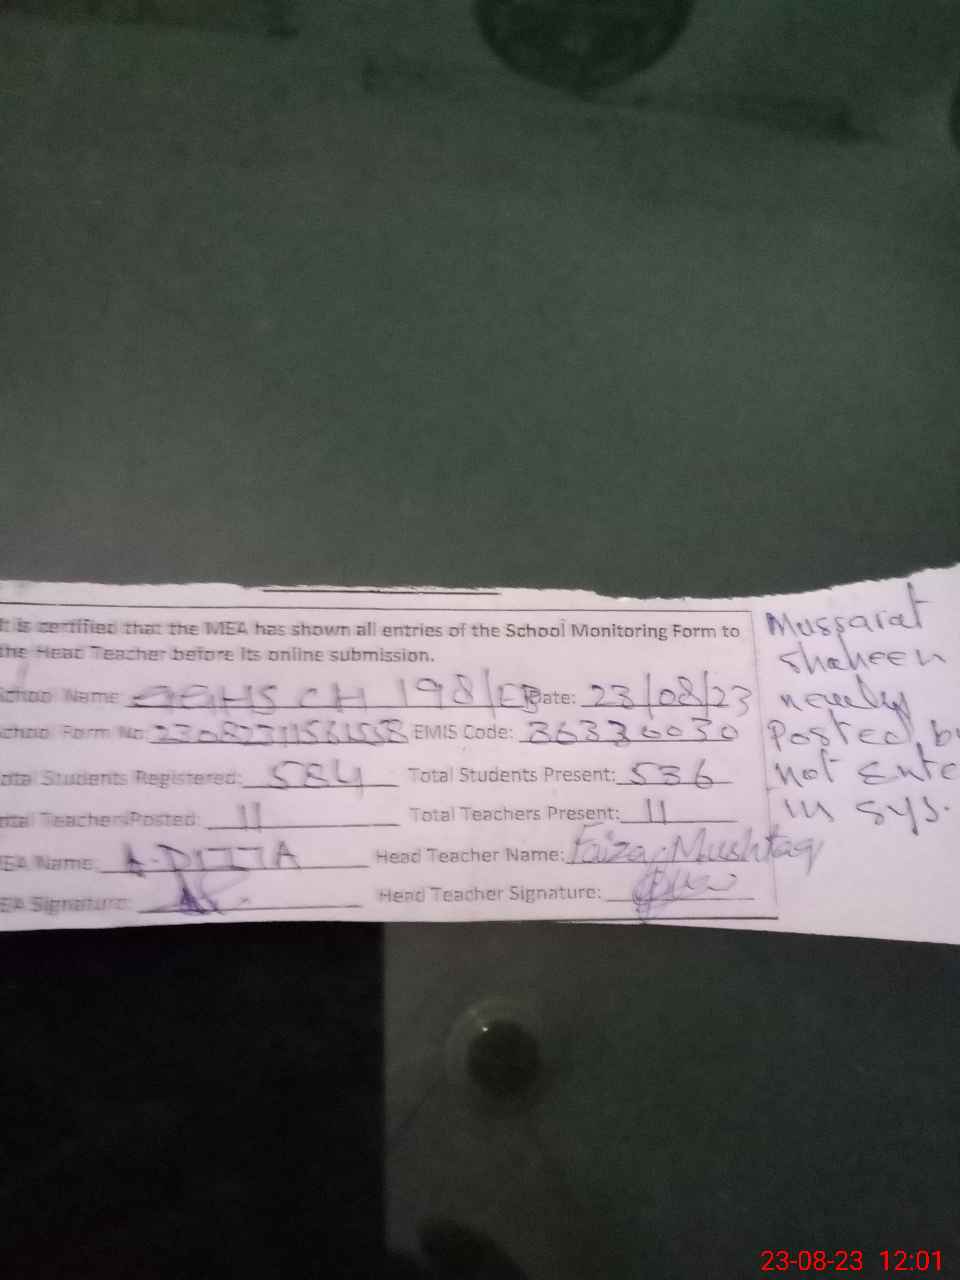 It is certified that the MEA has shown all entries of the School Monitoring Form to
the Head Teacher before its online submission.
School Name: GGHS CH 198/EB Date: 23/08/23
School Form No: EMIS Code: 36336030
Total Students Registered: 584 Total Students Present: 536
Total Teacher Posted: 11 Total Teachers Present: 11
EA Name: A. DITTA Head Teacher Name: Faiza Mushtaq
EA Signature: Head Teacher Signature:
Mussarat
Shaheen
newly
Posted, bu
not Ente
in sys.
23-08-23 12:01